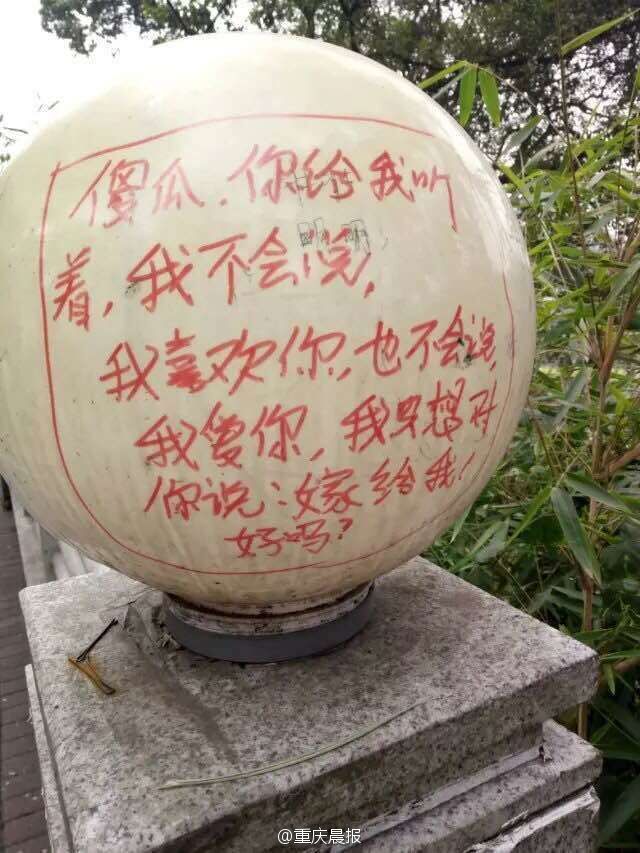 傻瓜.你给我听
着,我不会说,
我喜欢你,也不会说,
我爱你,我只想对
你说:嫁给我!
好吗?
@重庆晨报